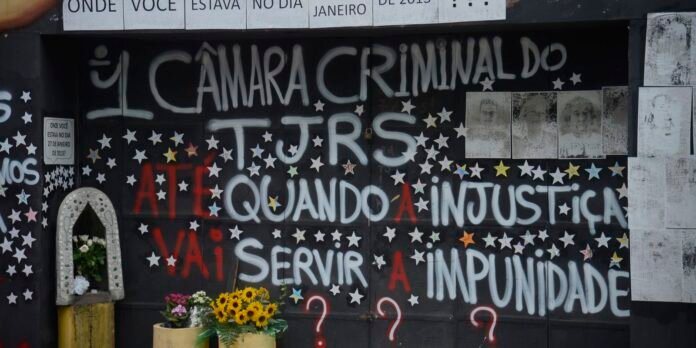 ONDE VOCÊ ESTAVA NO DIA JANEIRO DE 2013 ???
1ª CÂMARA CRIMINAL DO
TJRS
ATÉ QUANDO A INJUSTIÇA
VAI SERVIR A IMPUNIDADE
? ? ?
ONDE VOCÊ
ESTAVA NO DIA
27 DE JANEIRO
DE 2013?
S
MOS